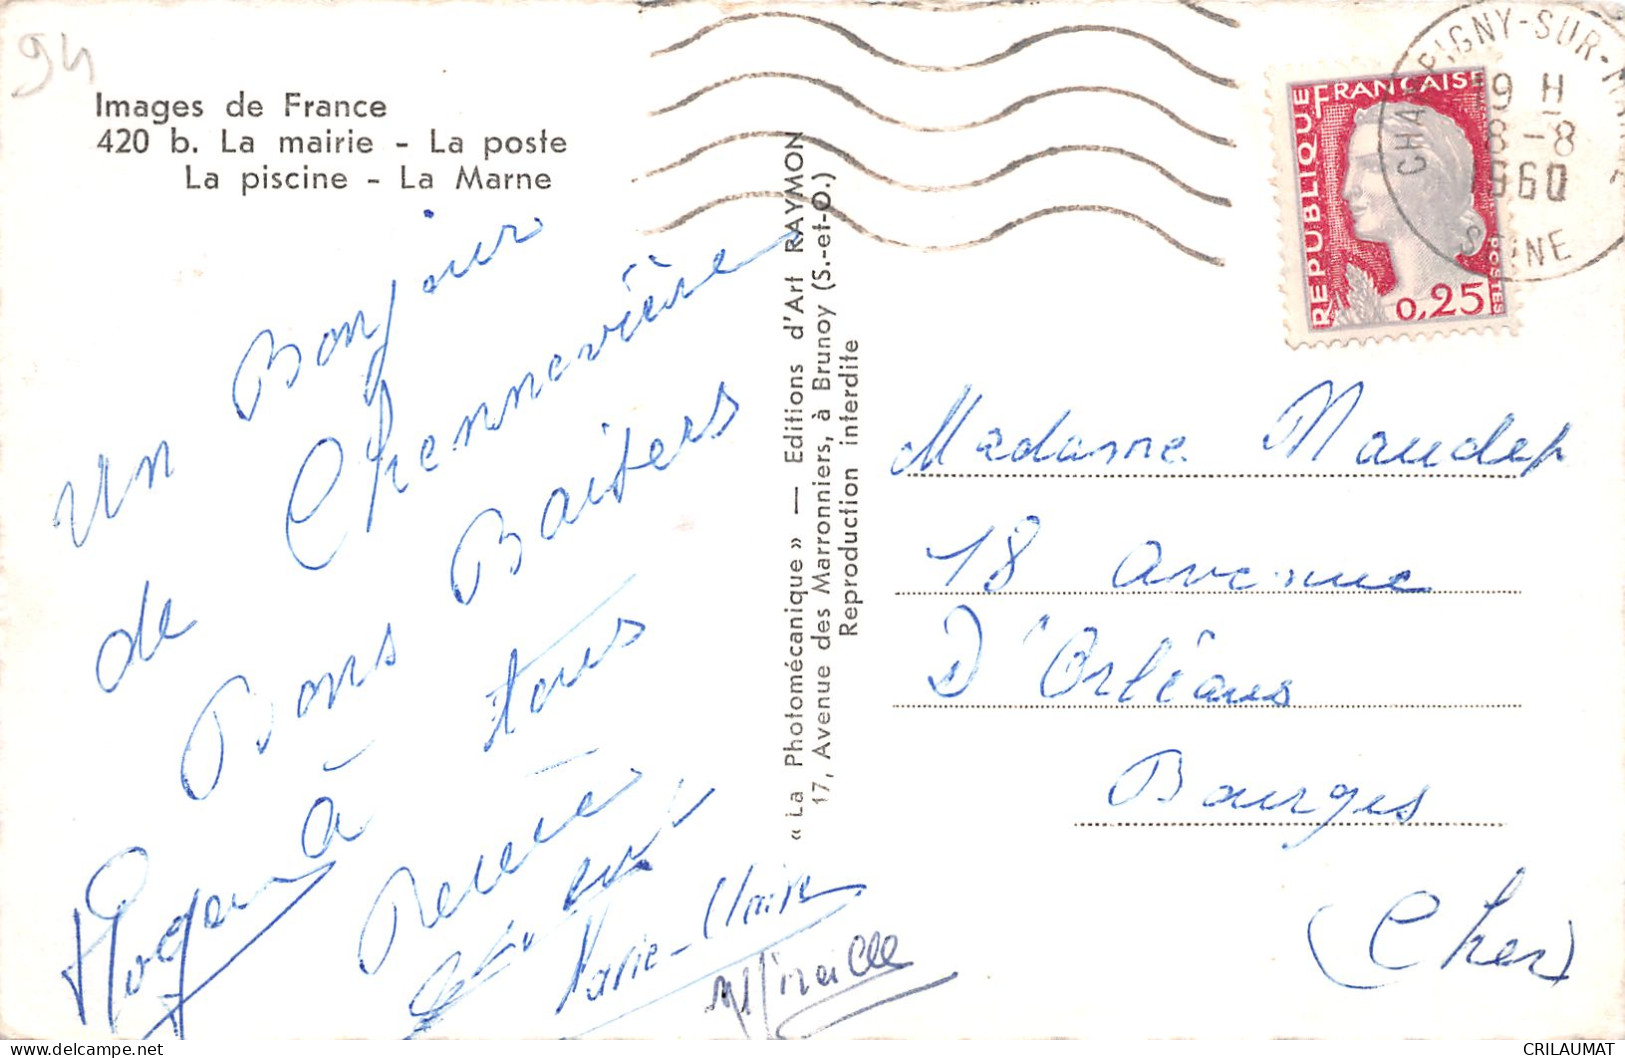 94
Images de France
420 b. La mairie - La poste
La piscine - La Marne
Un Bonjour
de Chennevière
Bons Baisers
à tous
Renée
Roger
Marie-Claire
Mireille
« La Photomécanique » — Editions d'Art RAYMON
17, Avenue des Marronniers, à Brunoy (S.-et-O.)
Reproduction interdite
CHAMPIGNY-SUR-MARNE
19 H
8-8
1960
SEINE
REPUBLIQUE FRANÇAISE
POSTES
0,25
Madame Naudep
18 avenue
D'Orléans
Bourges
(Cher)
CRILAUMAT